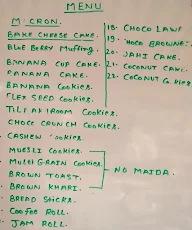 MENU
BAKE CHEESE CAKE.
BLUE BERRY Muffins.
BANANA CUP CAKE.
BANANA CAKE.
BANANA Cookies
FLEX SEED Cookies.
Cookies.
CHOCO CRUNCH Cookies.
CASHEW Cookies
MUESLI Cookies.
MULTI GRAIN Cookies
BROWN TOAST.
BROWN KHARI.
NO MAIDA.
BREAD STICKS.
COOFEE ROLL.
JAM ROLL.
18. CHOCO LAVA
19. CHOCO BROWNE
20. JARI CAKE.
21. COCONUT CAKE.
22. COCONUT